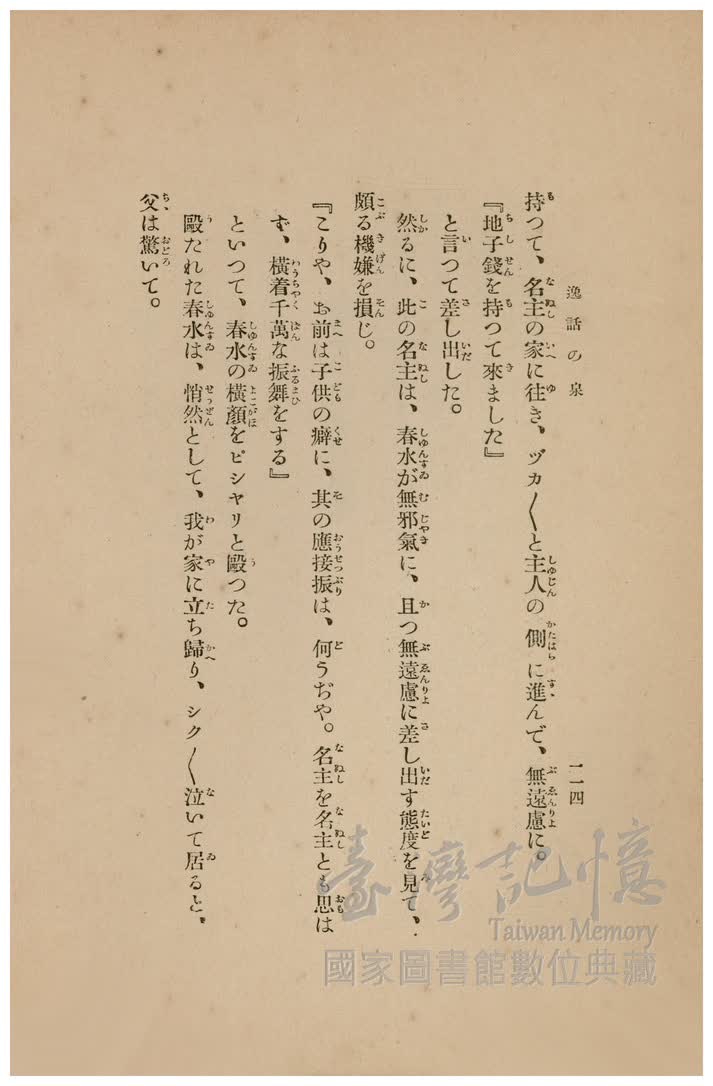 逸話の泉
一一四
持つて、名主の家に往き、ヅカ〱と主人の側に進んで、無遠慮に。
『地子錢を持つて來ました』
と言つて差し出した。
然るに、此の名主は、春水が無邪氣に、且つ無遠慮に差し出す態度を見て、
頗る機嫌を損じ。
『こりや、お前は子供の癖に、其の應接振は、何うぢや。名主を名主とも思は
ず、横着千萬な振舞をする』
といつて、春水の横顏をピシャリと毆つた。
毆たれた春水は、悄然として、我が家に立ち歸り、シク〱泣いて居ると、
父は驚いて。
臺灣記憶
Taiwan Memory
國家圖書館數位典藏